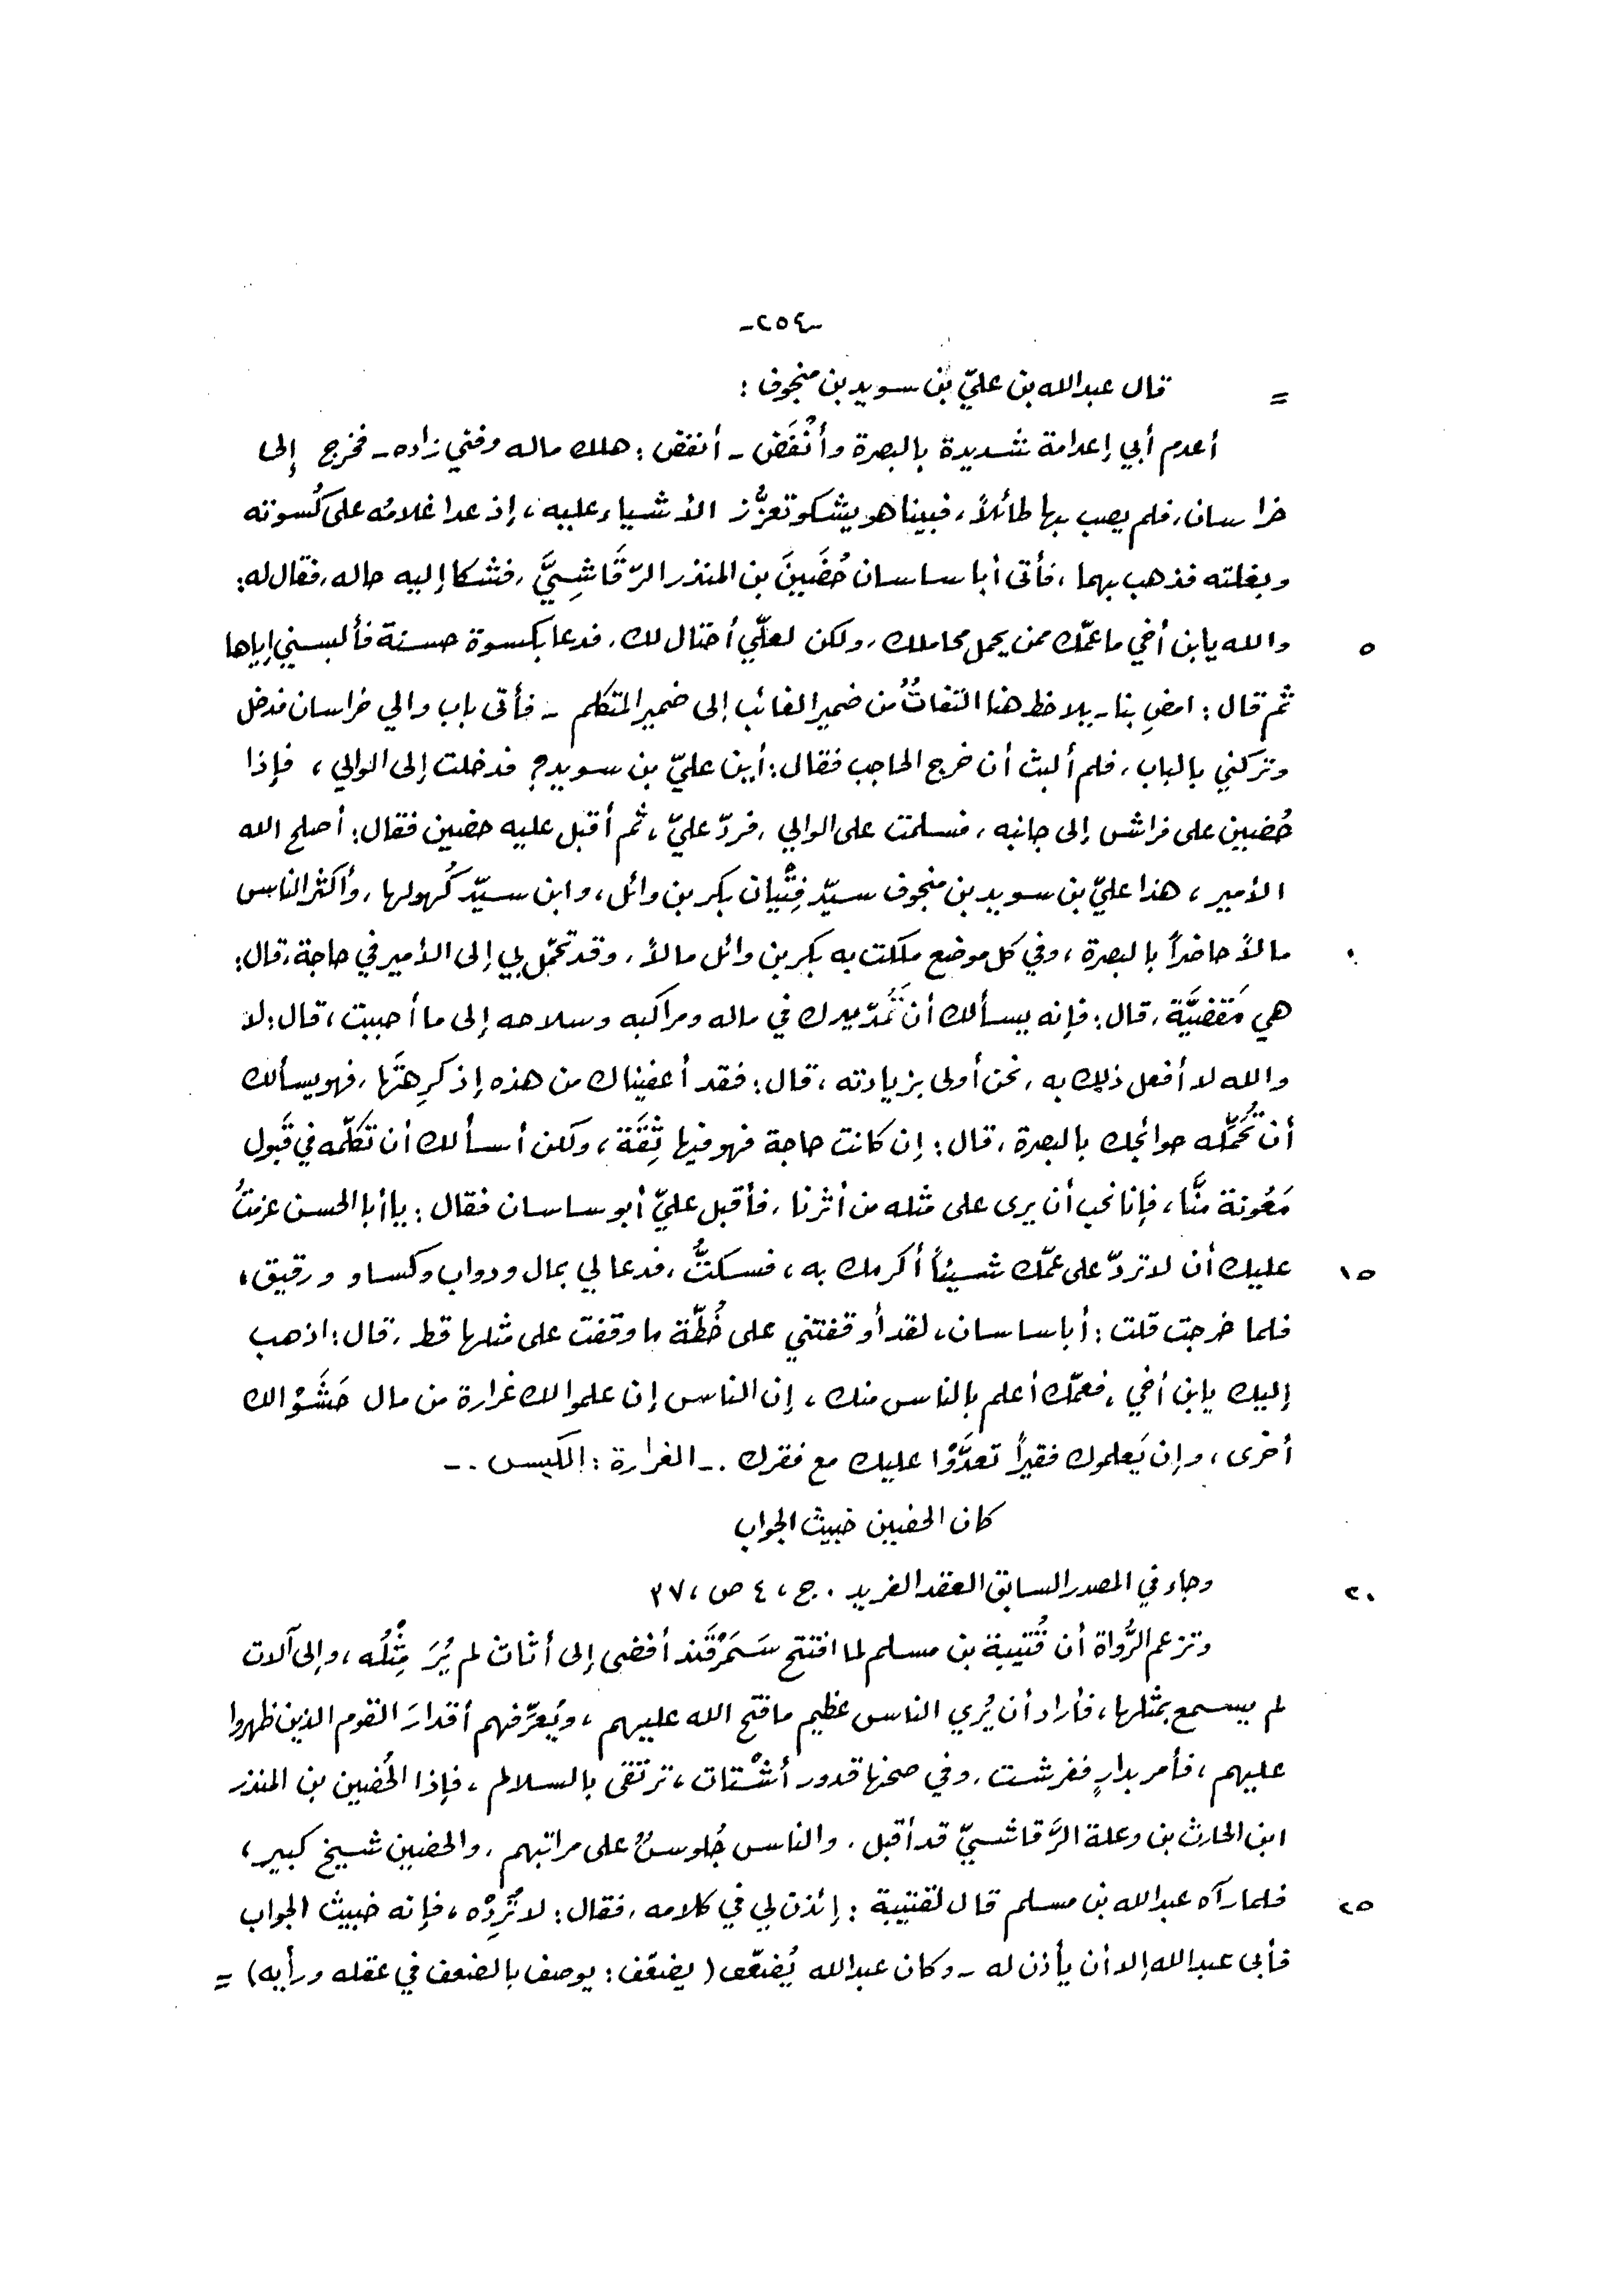 -٢٥٤-
= قال عبدالله بن عليّ بن سويد بن منجوف :
أعدم أبي إعدامة شديدة بالبصرة وأَنْفَضَ - أنفض : هلك ماله وفني زاده - فخرج إلى
خراسان، فلم يصب بها طائلاً، فبينا هو يشكو تعزُّز الأشياء عليه ، إذ عدا غلامُه على كُسوته
وبغلته فذهب بهما ، فأتى أبا ساسان حُضَينَ بن المنذر الرَّقَاشِيَّ ، فشكا إليه حاله ، فقال له :
٥ والله يابن أخي ما عمّك ممن يحمل محاملك ، ولكن لعلّي أحتال لك ، فدعا بكسوة حسنة فألبسني إياها
ثم قال : امضِ بنا - يلاحظ هنا التفاتٌ من ضمير الغائب إلى ضمير المتكلم - فأتى باب والي خراسان فدخل
وتركني بالباب ، فلم ألبث أن خرج الحاجب فقال : أين عليّ بن سويد ؟ فدخلت إلى الوالي ، فإذا
حُضين على فراش إلى جانبه ، فسلمت على الوالي ، فردّ عليّ ، ثم أقبل عليه حضين فقال : أصلح الله
الأمير ، هذا عليّ بن سويد بن منجوف سيّد فِتْيان بكر بن وائل ، وابن سيّد كُهولها ، وأكثر الناس
١٠ مالاً حاضراً بالبصرة ، وفي كل موضع ملكت به بكر بن وائل مالاً ، وقد تحمّل بي إلى الأمير في حاجة ، قال :
هي مَقضيَّة ، قال : فإنه يسألك أن تَمُدّ يدك في ماله ومراكبه وسلاحه إلى ما أحببت ، قال : لا
والله لا أفعل ذلك به ، نحن أولى بزيادته ، قال : فقد أعفيناك من هذه إذ كرِهتَها ، فهو يسألك
أن تُحَمِّله حوائجك بالبصرة ، قال : إن كانت حاجة فهو فيها ثِقَة ، ولكن أسألك أن تكلّمه في قَبول
مَعُونة منَّا ، فإنا نحب أن يرى على مثله من أثرنا ، فأقبل عليّ أبو ساسان فقال : يا أبا الحسن عزمتُ
١٥ عليك أن لا تردّ على عمّك شيئاً أكرمك به ، فسكتُّ ، فدعا لي بمال ودواب وكساو ورقيق ،
فلما خرجت قلت : أبا ساسان ، لقد أوقفتني على خُطّة ما وقفت على مثلها قط ، قال : اذهب
إليك يابن أخي ، فعمّك أعلم بالناس منك ، إن الناس إن علموا لك غرارة من مال حَشَوْا لك
أخرى ، وإن يَعلموك فقيراً تعدَّوْا عليك مع فقرك . - الغرارة : الكيس . -
كان الحضين خبيث الجواب
٢٠ وجاء في المصدر السابق العقد الفريد . ج ، ٤ ص ، ٣٧
وتزعم الرُّواة أن قُتيبة بن مسلم لما افتتح سَمَرْقَند أفضى إلى أثاث لم يُرَ مِثْلُه ، وإلى آلات
لم يسمع بمثلها ، فأراد أن يُري الناس عظيم ما فتح الله عليهم ، ويُعرِّفهم أقدارَ القوم الذين ظهروا
عليهم ، فأمر بدارٍ ففرشت ، وفي صحنها قدور أشْتات ، ترتقى بالسلالم ، فإذا الحُضين بن المنذر
ابن الحارث بن وعلة الرَّقاشيّ قد أقبل ، والناس جُلوسٌ على مراتبهم ، والحضين شيخ كبير ،
٢٥ فلما رآه عبدالله بن مسلم قال لقتيبة : إئذن لي في كلامه ، فقال : لا تُرِدْه ، فإنه خبيث الجواب
فأبى عبدالله إلا أن يأذن له - وكان عبدالله يُضعّف ( يضعّف : يوصف بالضعف في عقله ورأيه ) =